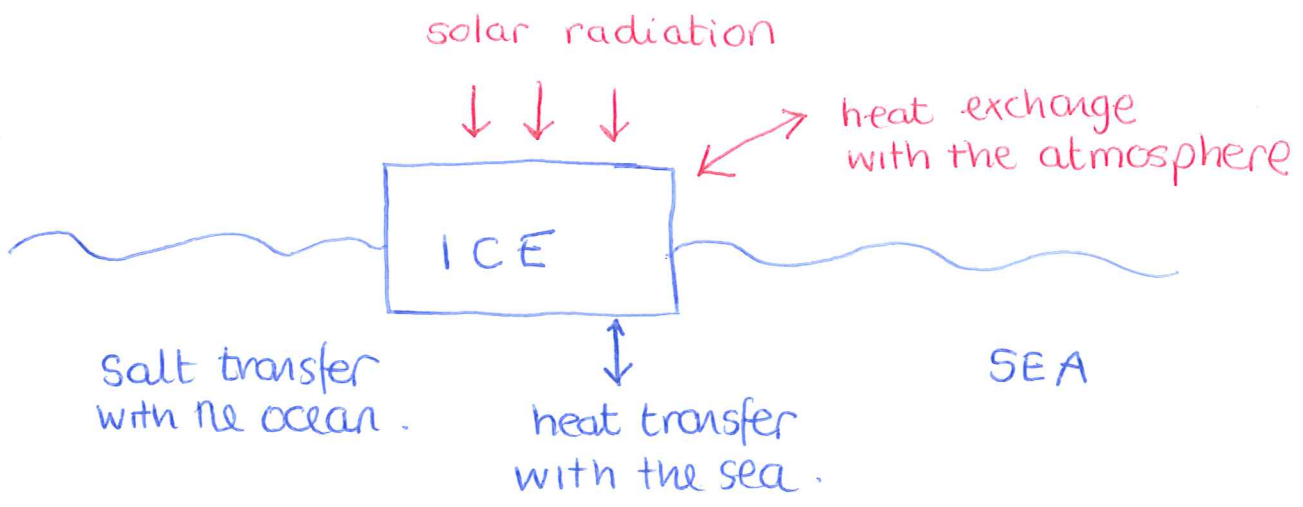 solar radiation
heat exchange
with the atmosphere
ICE
salt transfer
with the ocean.
SEA
heat transfer
with the sea.